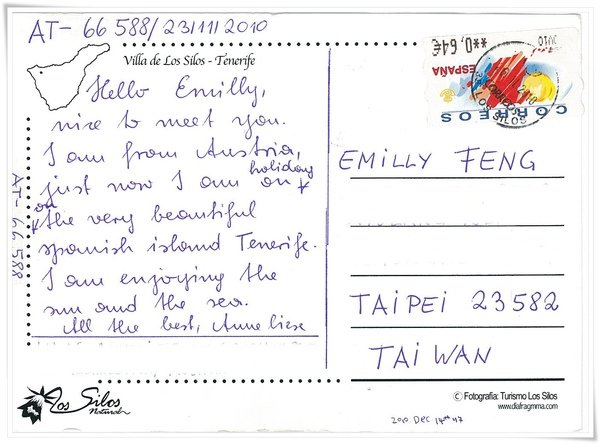 AT- 66 588/23/11/2010
Villa de Los Silos - Tenerife
Hello Emilly,
nice to meet you.
I am from Austria,
just now I am on holiday
on the very beautiful
spanish island Tenerife.
I am enjoying the
sun and the sea.
All the best, Anneliese
AT-66 588
**0,64€
ESPAÑA
CORREOS
CORREOS
LOS SILOS
EMILLY FENG
TAIPEI 23582
TAIWAN
Los Silos
Natural
© Fotografía: Turismo Los Silos
www.diafragmma.com
2010 DEC 14